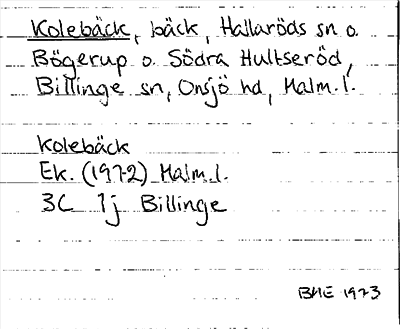 Kolebäck, bäck, Hallaröds sn o.
Bögerup o. Södra Hultseröd,
Billinge sn, Onsjö hd, Malm.l.
Kolebäck
Ek. (1972) Malm.l.
3C 1j Billinge
BHE 1973